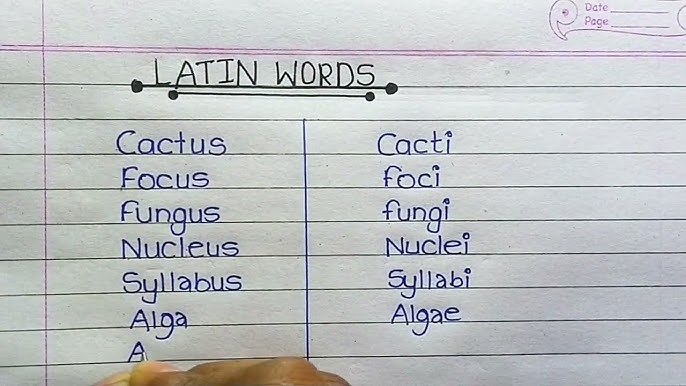 Date
Page
LATIN WORDS
Cactus Cacti
Focus foci
fungus fungi
Nucleus Nuclei
Syllabus Syllabi
Alga Algae
A